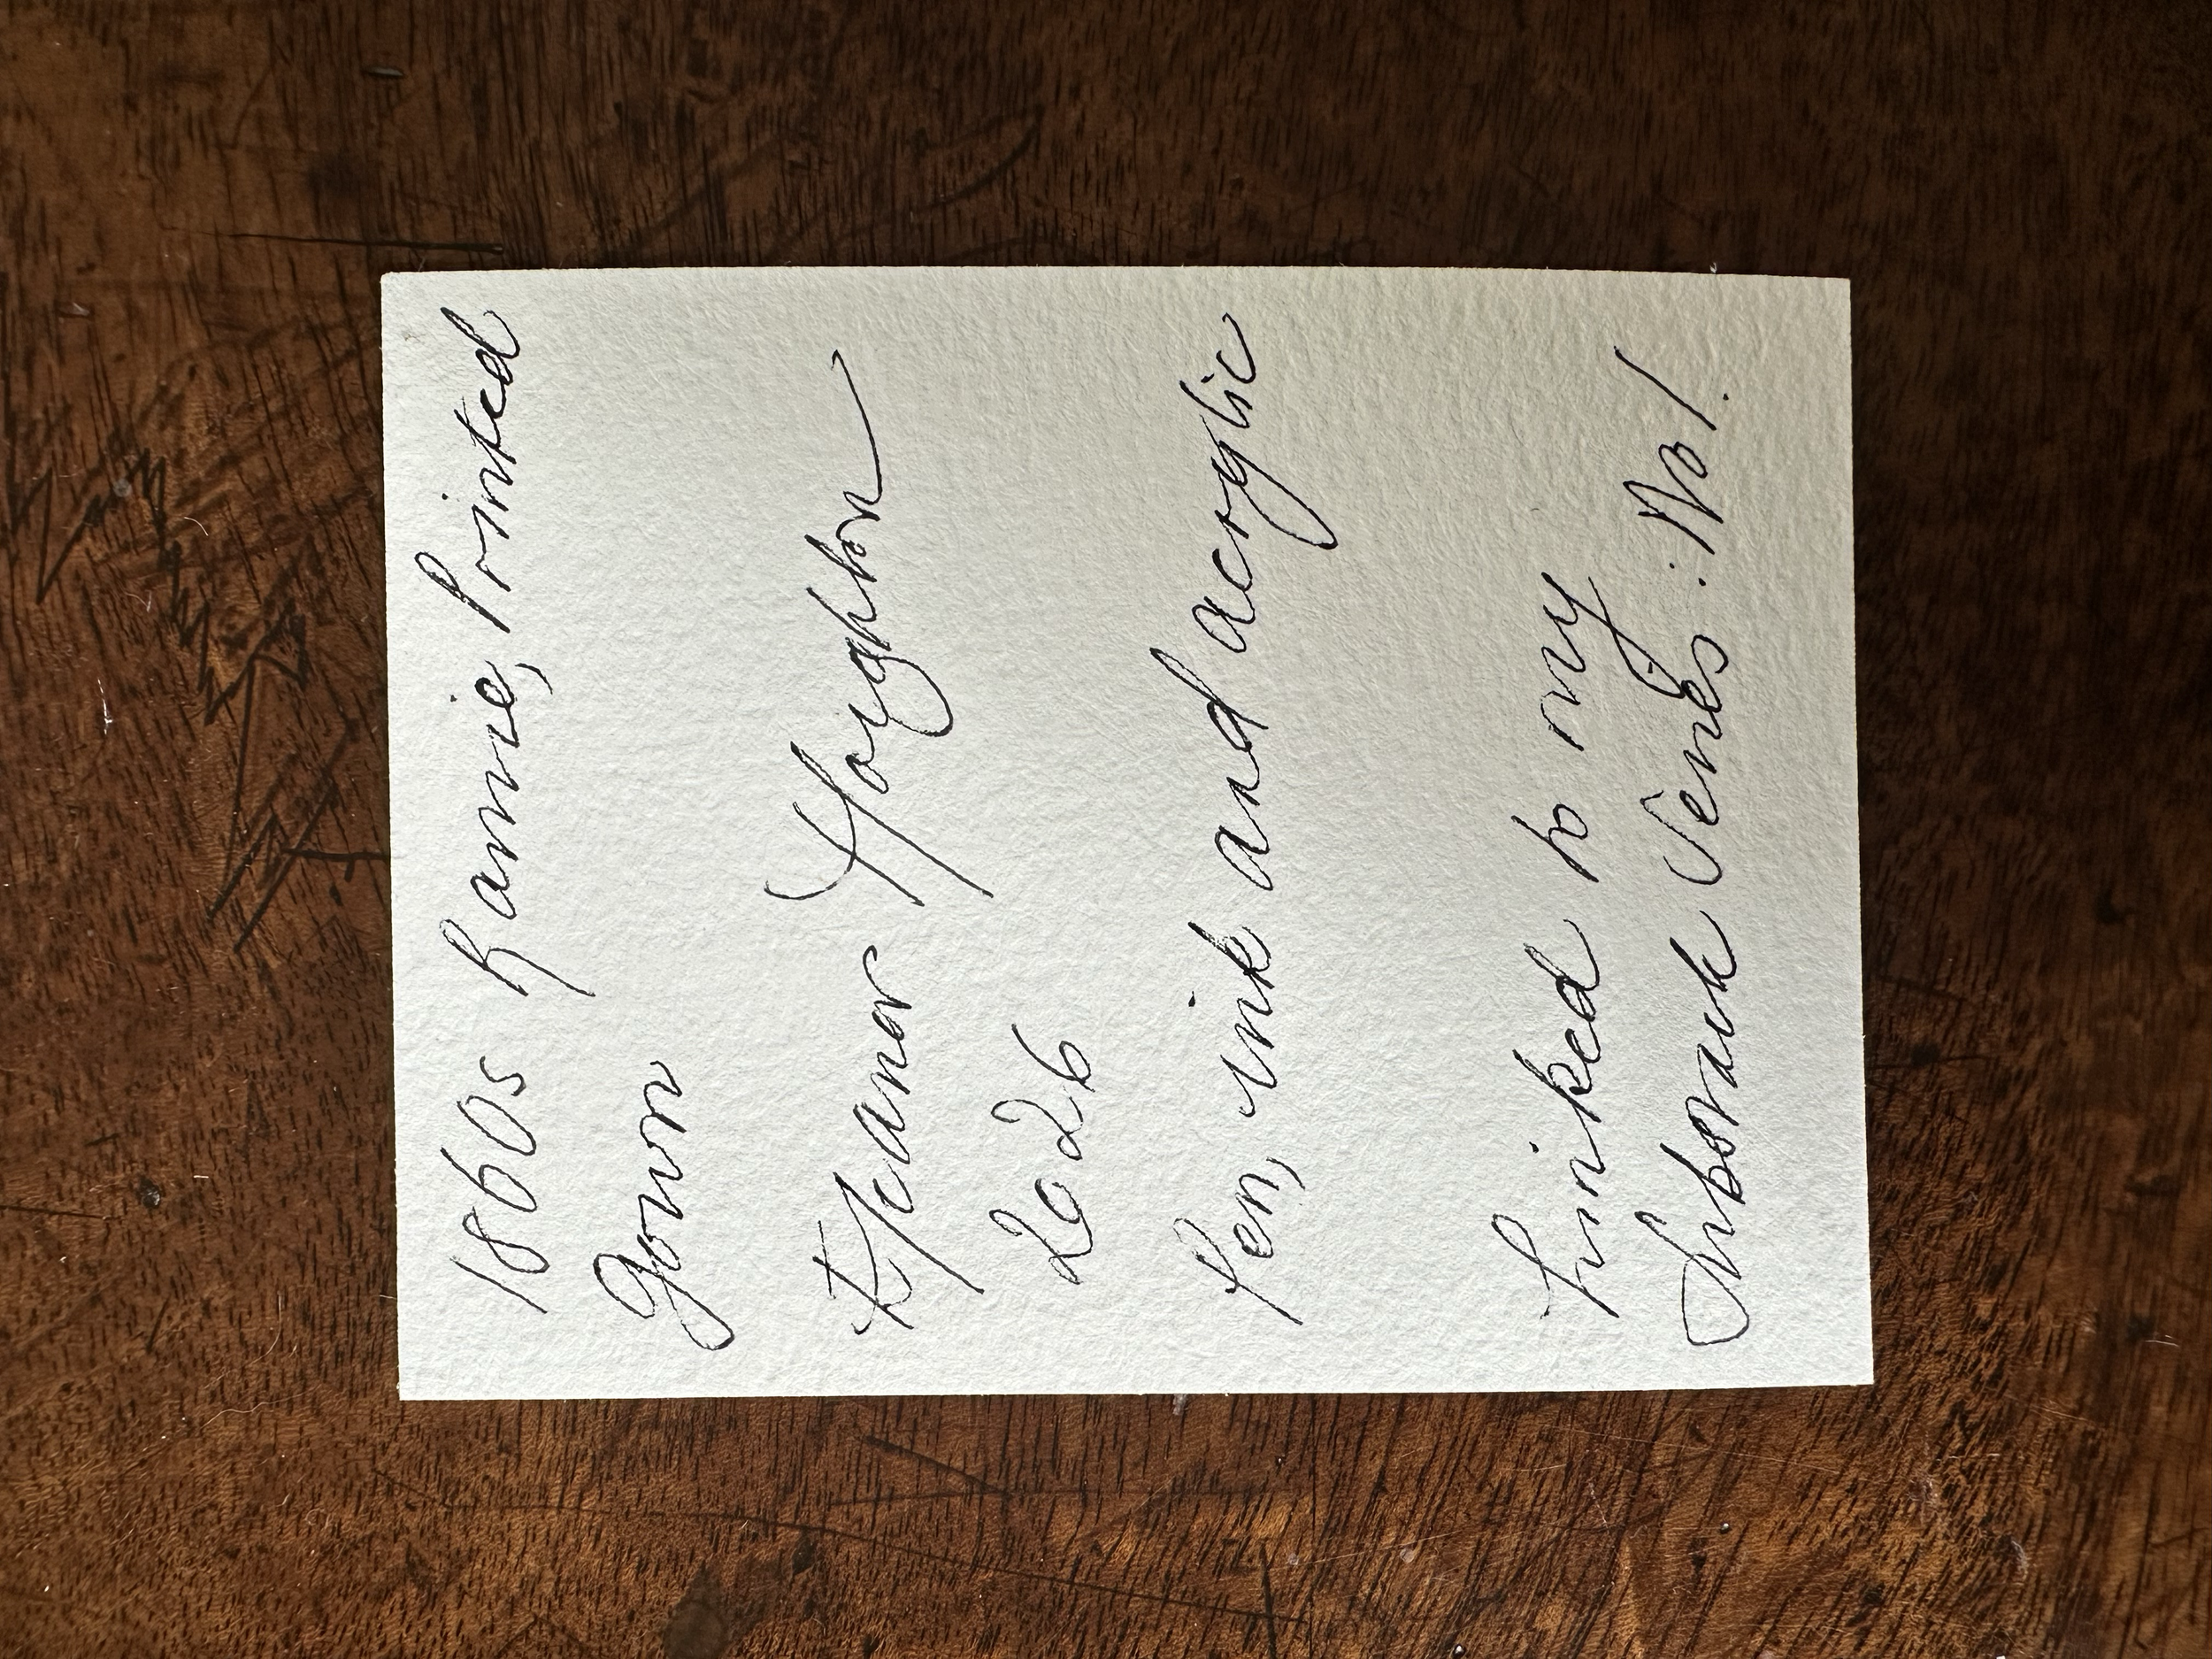 1860s Ramie, Printed
Gown
Eleanor Houghton
2026
Pen, ink and acrylic
Linked to my
Substack Series : No 1.